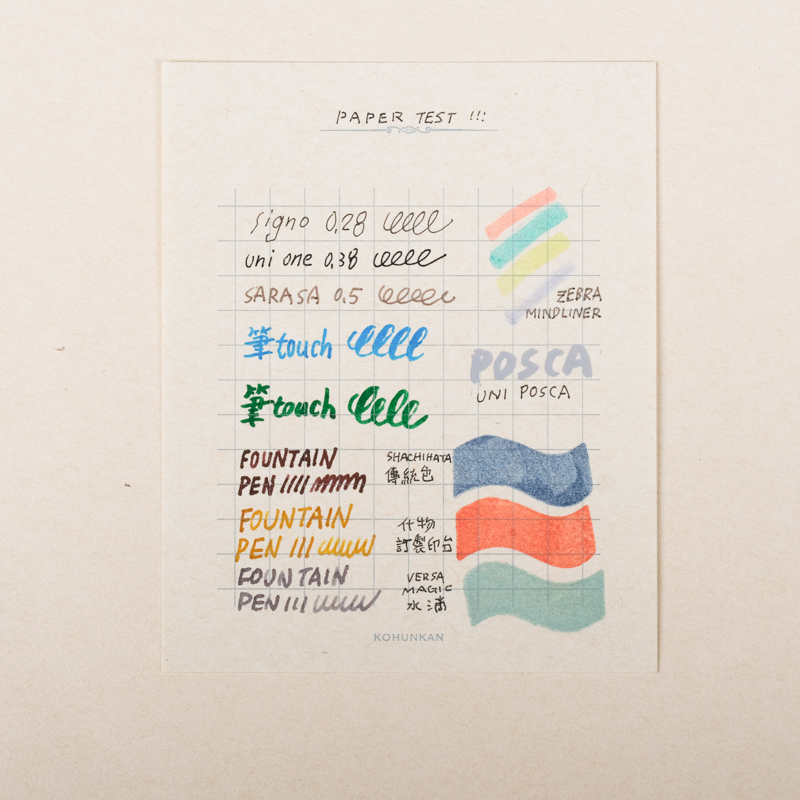 PAPER TEST !!!
Signo 0.28
uni one 0.38
SARASA 0.5
筆touch
筆touch
FOUNTAIN
PEN
FOUNTAIN
PEN
FOUNTAIN
PEN
ZEBRA
MINDLINER
POSCA
UNI POSCA
SHACHIHATA
傳統色
什物
訂製印台
VERSA
MAGIC
水滴
KOHUNKAN